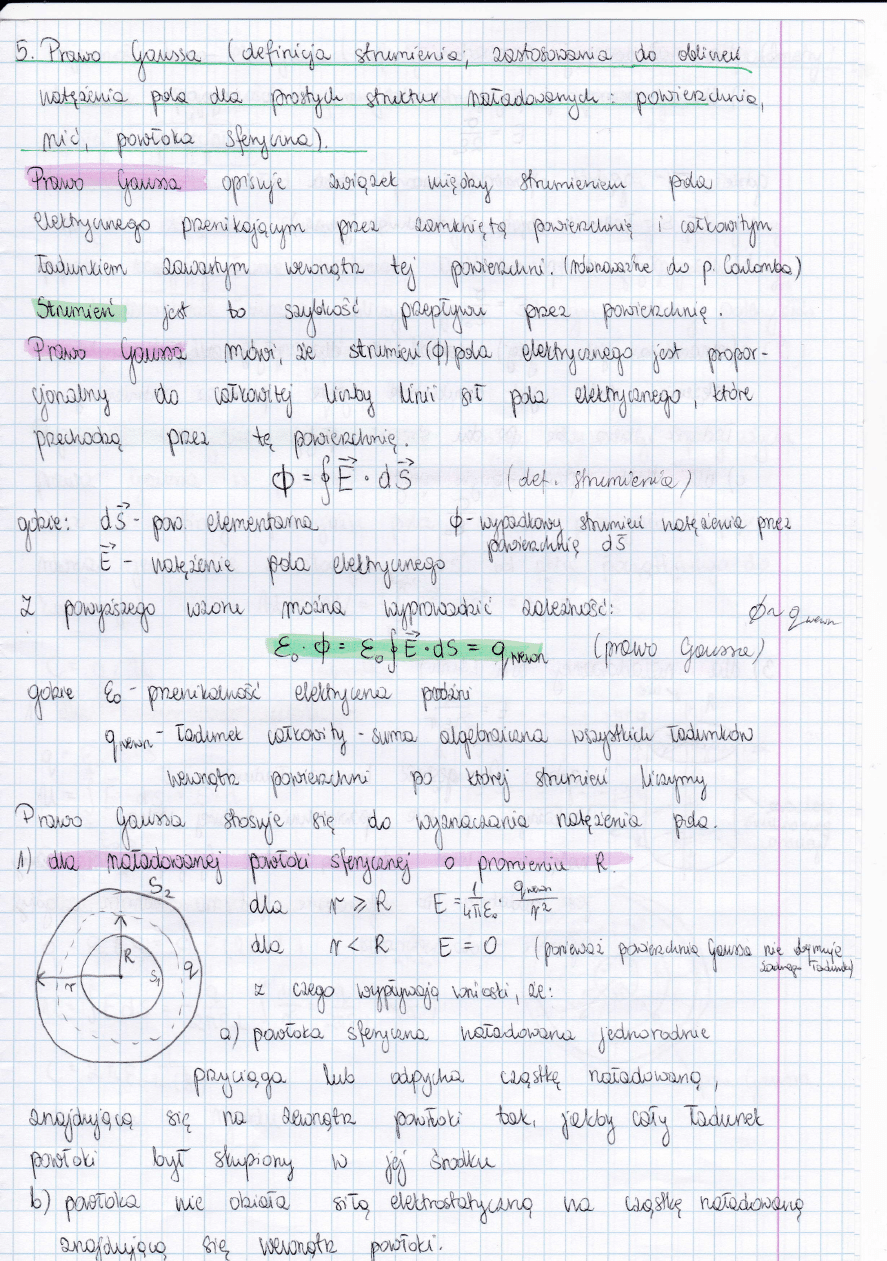 5. Prawo Gaussa (definicja strumienia, zastosowania do obliczeń
natężenia pola dla prostych struktur naładowanych: powierzchnia,
nić, powłoka sferyczna).
Prawo Gaussa opisuje związek między strumieniem pola
elektrycznego przenikającym przez zamkniętą powierzchnię i całkowitym
ładunkiem zawartym wewnątrz tej powierzchni. (równoważne do p. Coulomba)
Strumień jest to szybkość przepływu przez powierzchnię.
Prawo Gaussa mówi, że strumień (ϕ) pola elektrycznego jest propor-
cjonalny do całkowitej liczby linii sił pola elektrycznego, które
przechodzą przez tę powierzchnię.
ϕ = ∮ E⃗ · dS⃗ (def. strumienia)
gdzie: dS⃗ - pow. elementarna ϕ - wypadkowy strumień natężenia przez
powierzchnię dS⃗
E⃗ - natężenie pola elektrycznego
Z powyższego wzoru można wyprowadzić zależność: ϕ ~ q wewn
ε₀ · ϕ = ε₀ ∮ E⃗ · dS = q wewn (prawo Gaussa)
gdzie ε₀ - przenikalność elektryczna próżni
q wewn - ładunek całkowity - suma algebraiczna wszystkich ładunków
wewnątrz powierzchni po której strumień liczymy
Prawo Gaussa stosuje się do wyznaczania natężenia pola.
1) dla naładowanej powłoki sferycznej o promieniu R.
S₂
dla r ⩾ R E = 1/4πε₀ · q wewn/r²
R
dla r < R E = 0 (ponieważ powierzchnia Gaussa nie obejmuje
żadnego ładunku)
r S₁ q
z czego wypływają wnioski, że:
a) powłoka sferyczna naładowana jednorodnie
przyciąga lub odpycha cząstkę naładowaną,
znajdującą się na zewnątrz powłoki tak, jakby cały ładunek
powłoki był skupiony w jej środku
b) powłoka nie działa siłą elektrostatyczną na cząstkę naładowaną
znajdującą się wewnątrz powłoki.